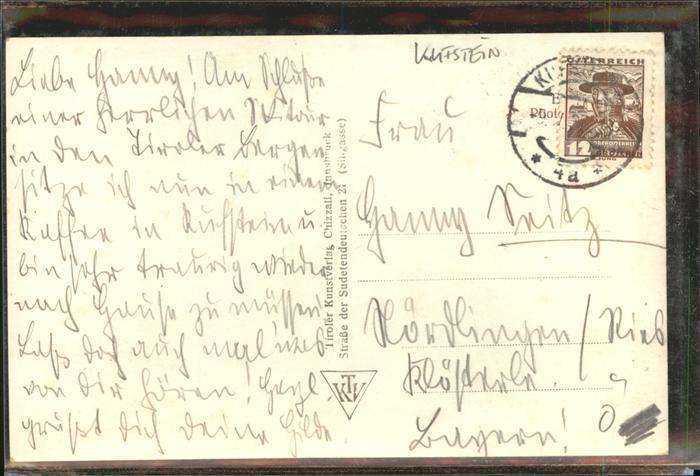 Liebe Hanny! Am Schluße
einer herrlichen Skitour
in den Tiroler Bergen
sitze ich nun in einem
Kaffee in Kufstein u.
bin sehr traurig wieder
nach Hause zu müssen.
Laß doch auch mal etwas
von Dir hören! Herzl.
grüßt Dich deine Hilde.
Tiroler Kunstverlag Chizzali, Innsbruck
Straße der Sudetendeutschen 21 (Sillgasse)
TKV
KUFSTEIN
ÖSTERREICH
12
KU
4a
Frau
Hanny Seitz
Nördlingen / Ries
Klösterle.
Bayern!